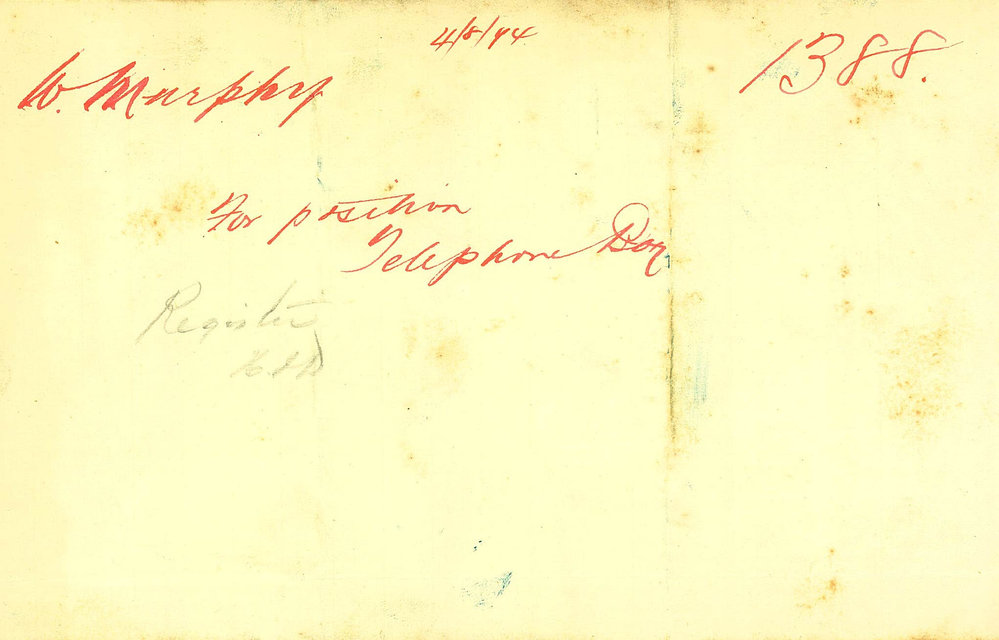 4/8/94
W. Murphy
1388.
For position
Telephone Boy
Register